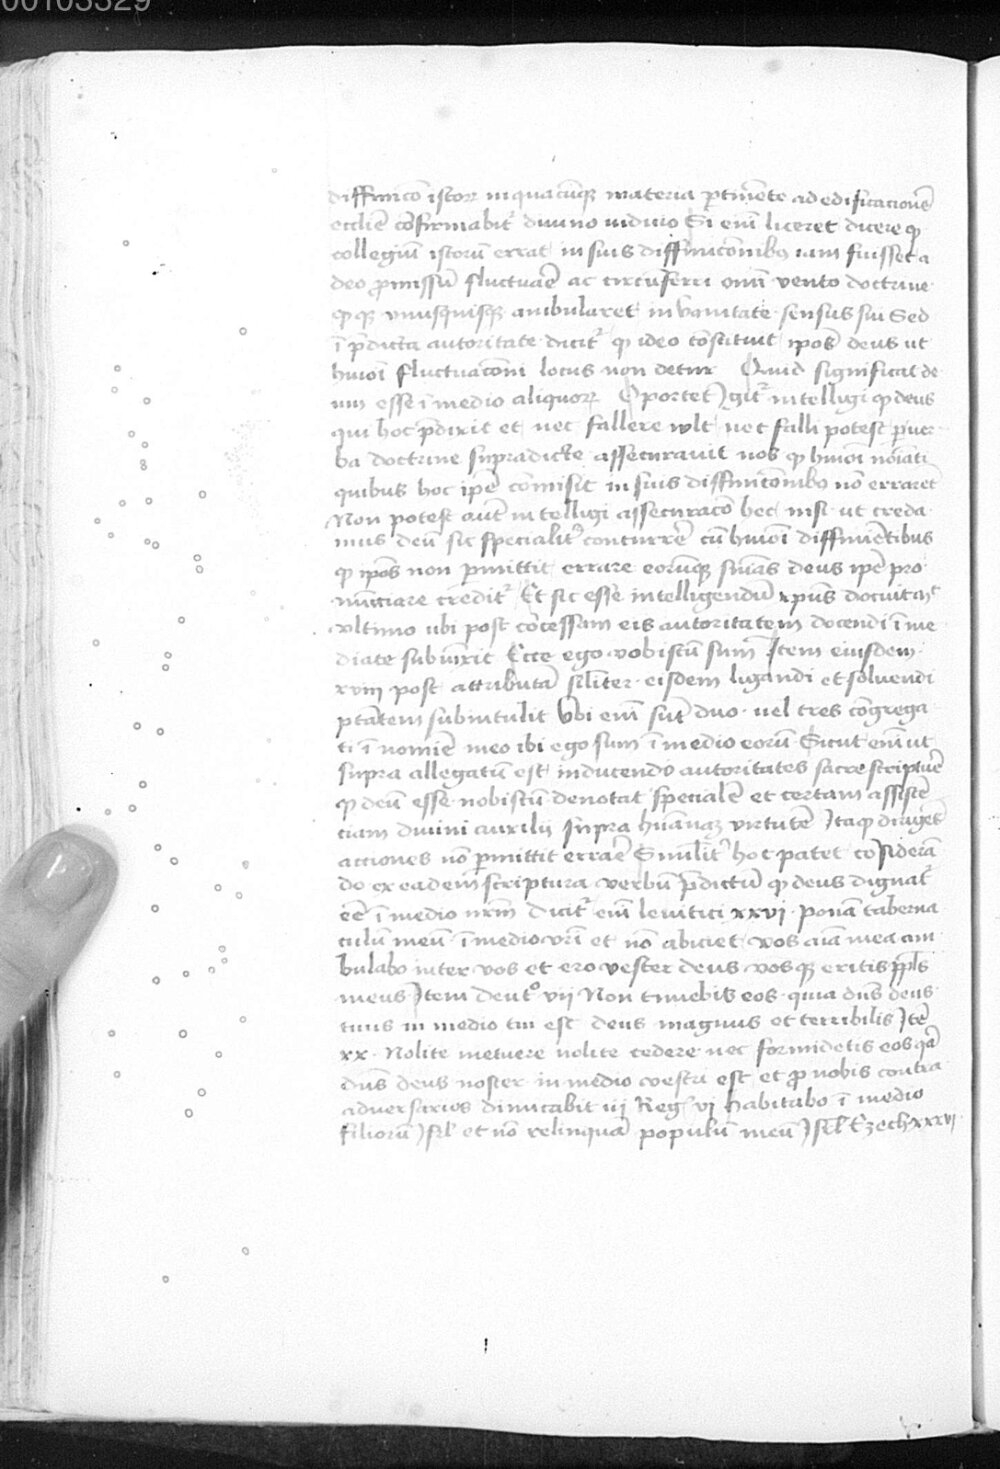 00103329
diffinicō istoꝝ in quacūqꝫ materia ꝑtinēte ad edificacionē
ecclie cōfirmabit᷑ diuino iudicio Si eni liceret dicere ꝙ
collegiū istorū errat in suis diffinicōnibꝰ iam fuisset a
deo ꝓmissū fluctuāe ac circūferri oīni vento doctrine
ꝙ qꝫ vnusquisqꝫ ambularet in vanitate sensus sui Sed
ī p̄dicta autoritate dicit᷑ ꝙ ideo cōstituit ipōs deus ut
huiōi fluctuacōni locus non detur Quid significat de
um esse ī medio aliquoꝝ Oportet Igit᷑ intelligi ꝙ deus
qui hoc p̄dixit et nec fallere wlt nec falli potest ꝑ ver
ba doctrine supradicte assecurauit nos ꝙ huiōi nōiati
quibus hoc ipē cōmisit in suis diffinicōnibꝰ nō erraret
Non potest autē intelligi assecuracō hec nisi ut creda
mus deū sic specialit᷑ concurrēe cū huiōi diffinientibus
ꝙ ipōs non ꝑmittit errare eorūqꝫ snīas deus ipē pro
nūciare credit᷑ Et sic esse intelligendū xpūs docuit mt
vltimo ubi post cōcessam eis autoritatem docendi ī me
diate subiūxit Ecce ego vobiscū sum Item eiusdem
xviii post attributā siliter eisdem ligandi et soluendi
ptātem subintulit Vbi eni sūt duo vel tres cōgrega
ti ī nomīe meo ibi ego sum ī medio eorū Sicut enī ut
supra allegatū est inducendo autoritates sacre scripture
ꝙ deū esse nobiscū denotat specialē et certam assistē
ciam diuini auxilii supra humanaꝫ virtutē Itaꝙ dirigēs
acciones nō ꝑmittit errāe Similit᷑ hoc patet cōsiderā
do ex eadem scriptura verbū p̄dictū ꝙ deus dignat᷑
eē ī medio nrm̄ Dicit᷑ enī leuitici xxvi ponā taberna
culū meū ī medio vr̄i et nō abiciet vos aīa mea am
bulabo inter vos et ero vester deus vosqꝫ eritis pplūs
meus Item deutº vii Non timebis eos quia dn̄s deus
tuus in medio tui est deus magnus et terribilis Itē
xx Nolite metuere nolite cedere nec formidetis eos qā
dn̄s deus noster in medio vestri est et ꝓ nobis contra
aduersarios dimicabit iii Reg vi habitabo ī medio
filiorū Isrl et nō relinquā populū meū Isrl Ezech xxxvi